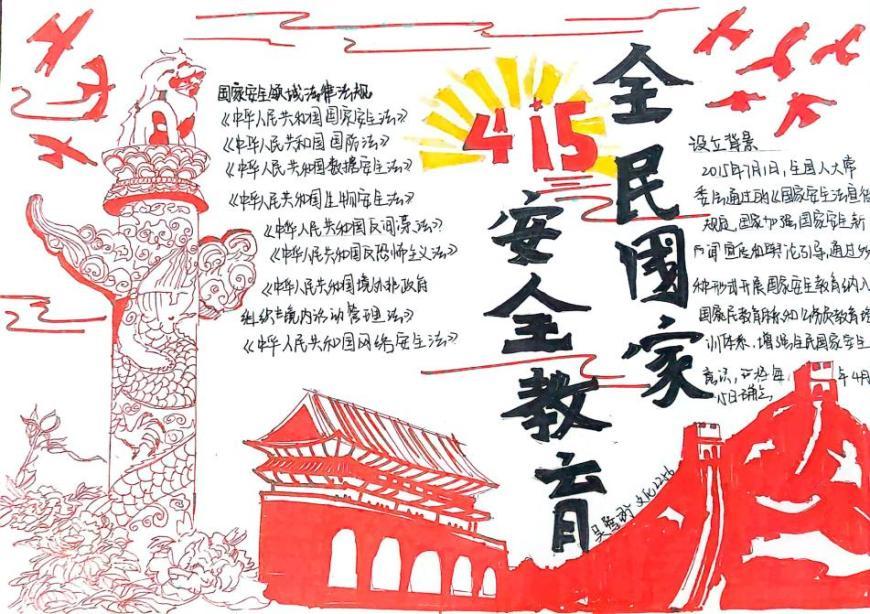 国家安全领域法律法规
《中华人民共和国国家安全法》
《中华人民共和国国防法》
《中华人民共和国数据安全法》
《中华人民共和国生物安全法》
《中华人民共和国反间谍法》
《中华人民共和国反恐怖主义法》
《中华人民共和国境外非政府
组织境内活动管理法》
《中华人民共和国网络安全法》
415
全民国家
安全教育
设立背景
2015年7月1日,全国人大常
委会通过的《国家安全法》
规定,国家加强国家安全新
闻宣传和舆论引导,通过多
种形式开展国家安全教育纳入
国民教育体系和公务员教育培
训体系,增强全民国家安全
意识,
年4月
15日